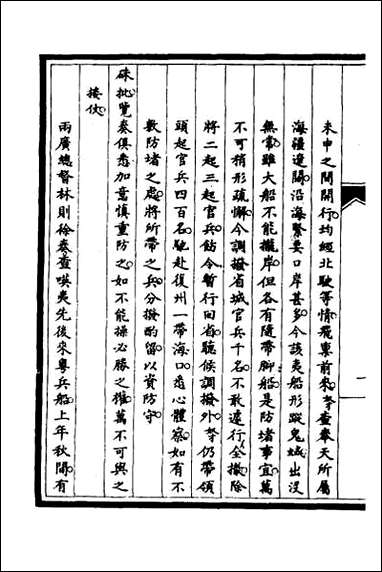 未申之間開行均經北駛等情飛稟前來奴才查奉天所屬
海疆遼闊沿海緊要口岸甚多今該夷船形蹤鬼蜮出沒
無常雖大船不能攏岸但各有隨帶脚船是防堵事宜萬
不可稍形疏懈今調撥省城官兵千名不敢遽行全撤除
將二起三起官兵飭令暫行回省聽候調撥外奴才仍帶領
頭起官兵四百名馳赴復州一帶海口悉心體察如有不
敷防堵之處將所帶之兵分撥酌留以資防守
硃批覽奏俱悉加意慎重防之如不能操必勝之權萬不可與之
接仗
兩廣總督林則徐奏查㗆夷先後來粵兵船上年秋間有
一